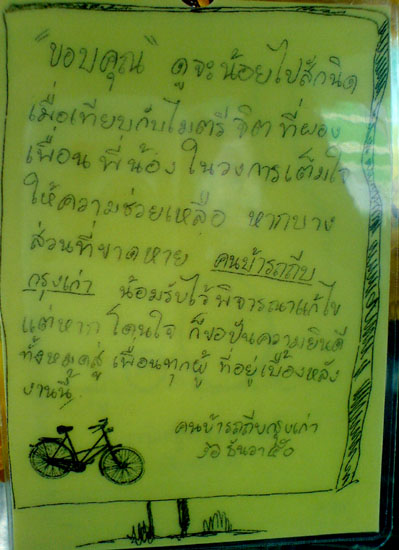 "ขอบคุณ" ดูจะน้อยไปสักนิด
เมื่อเทียบกับไมตรี จิต ที่ผอง
เพื่อน พี่ น้อง ในวงการเต็มใจ
ให้ความช่วยเหลือ หากบาง
ส่วนที่ขาดหาย คนบ้ารถถีบ
กรุงเก่า น้อมรับไว้พิจารณาแก้ไข
แต่หาก โดนใจ ก็ขอปันความยินดี
ทั้งหมดสู่ เพื่อนทุกผู้ ที่อยู่เบื้องหลัง
งานนี้
คนบ้ารถถีบกรุงเก่า
ธันวา